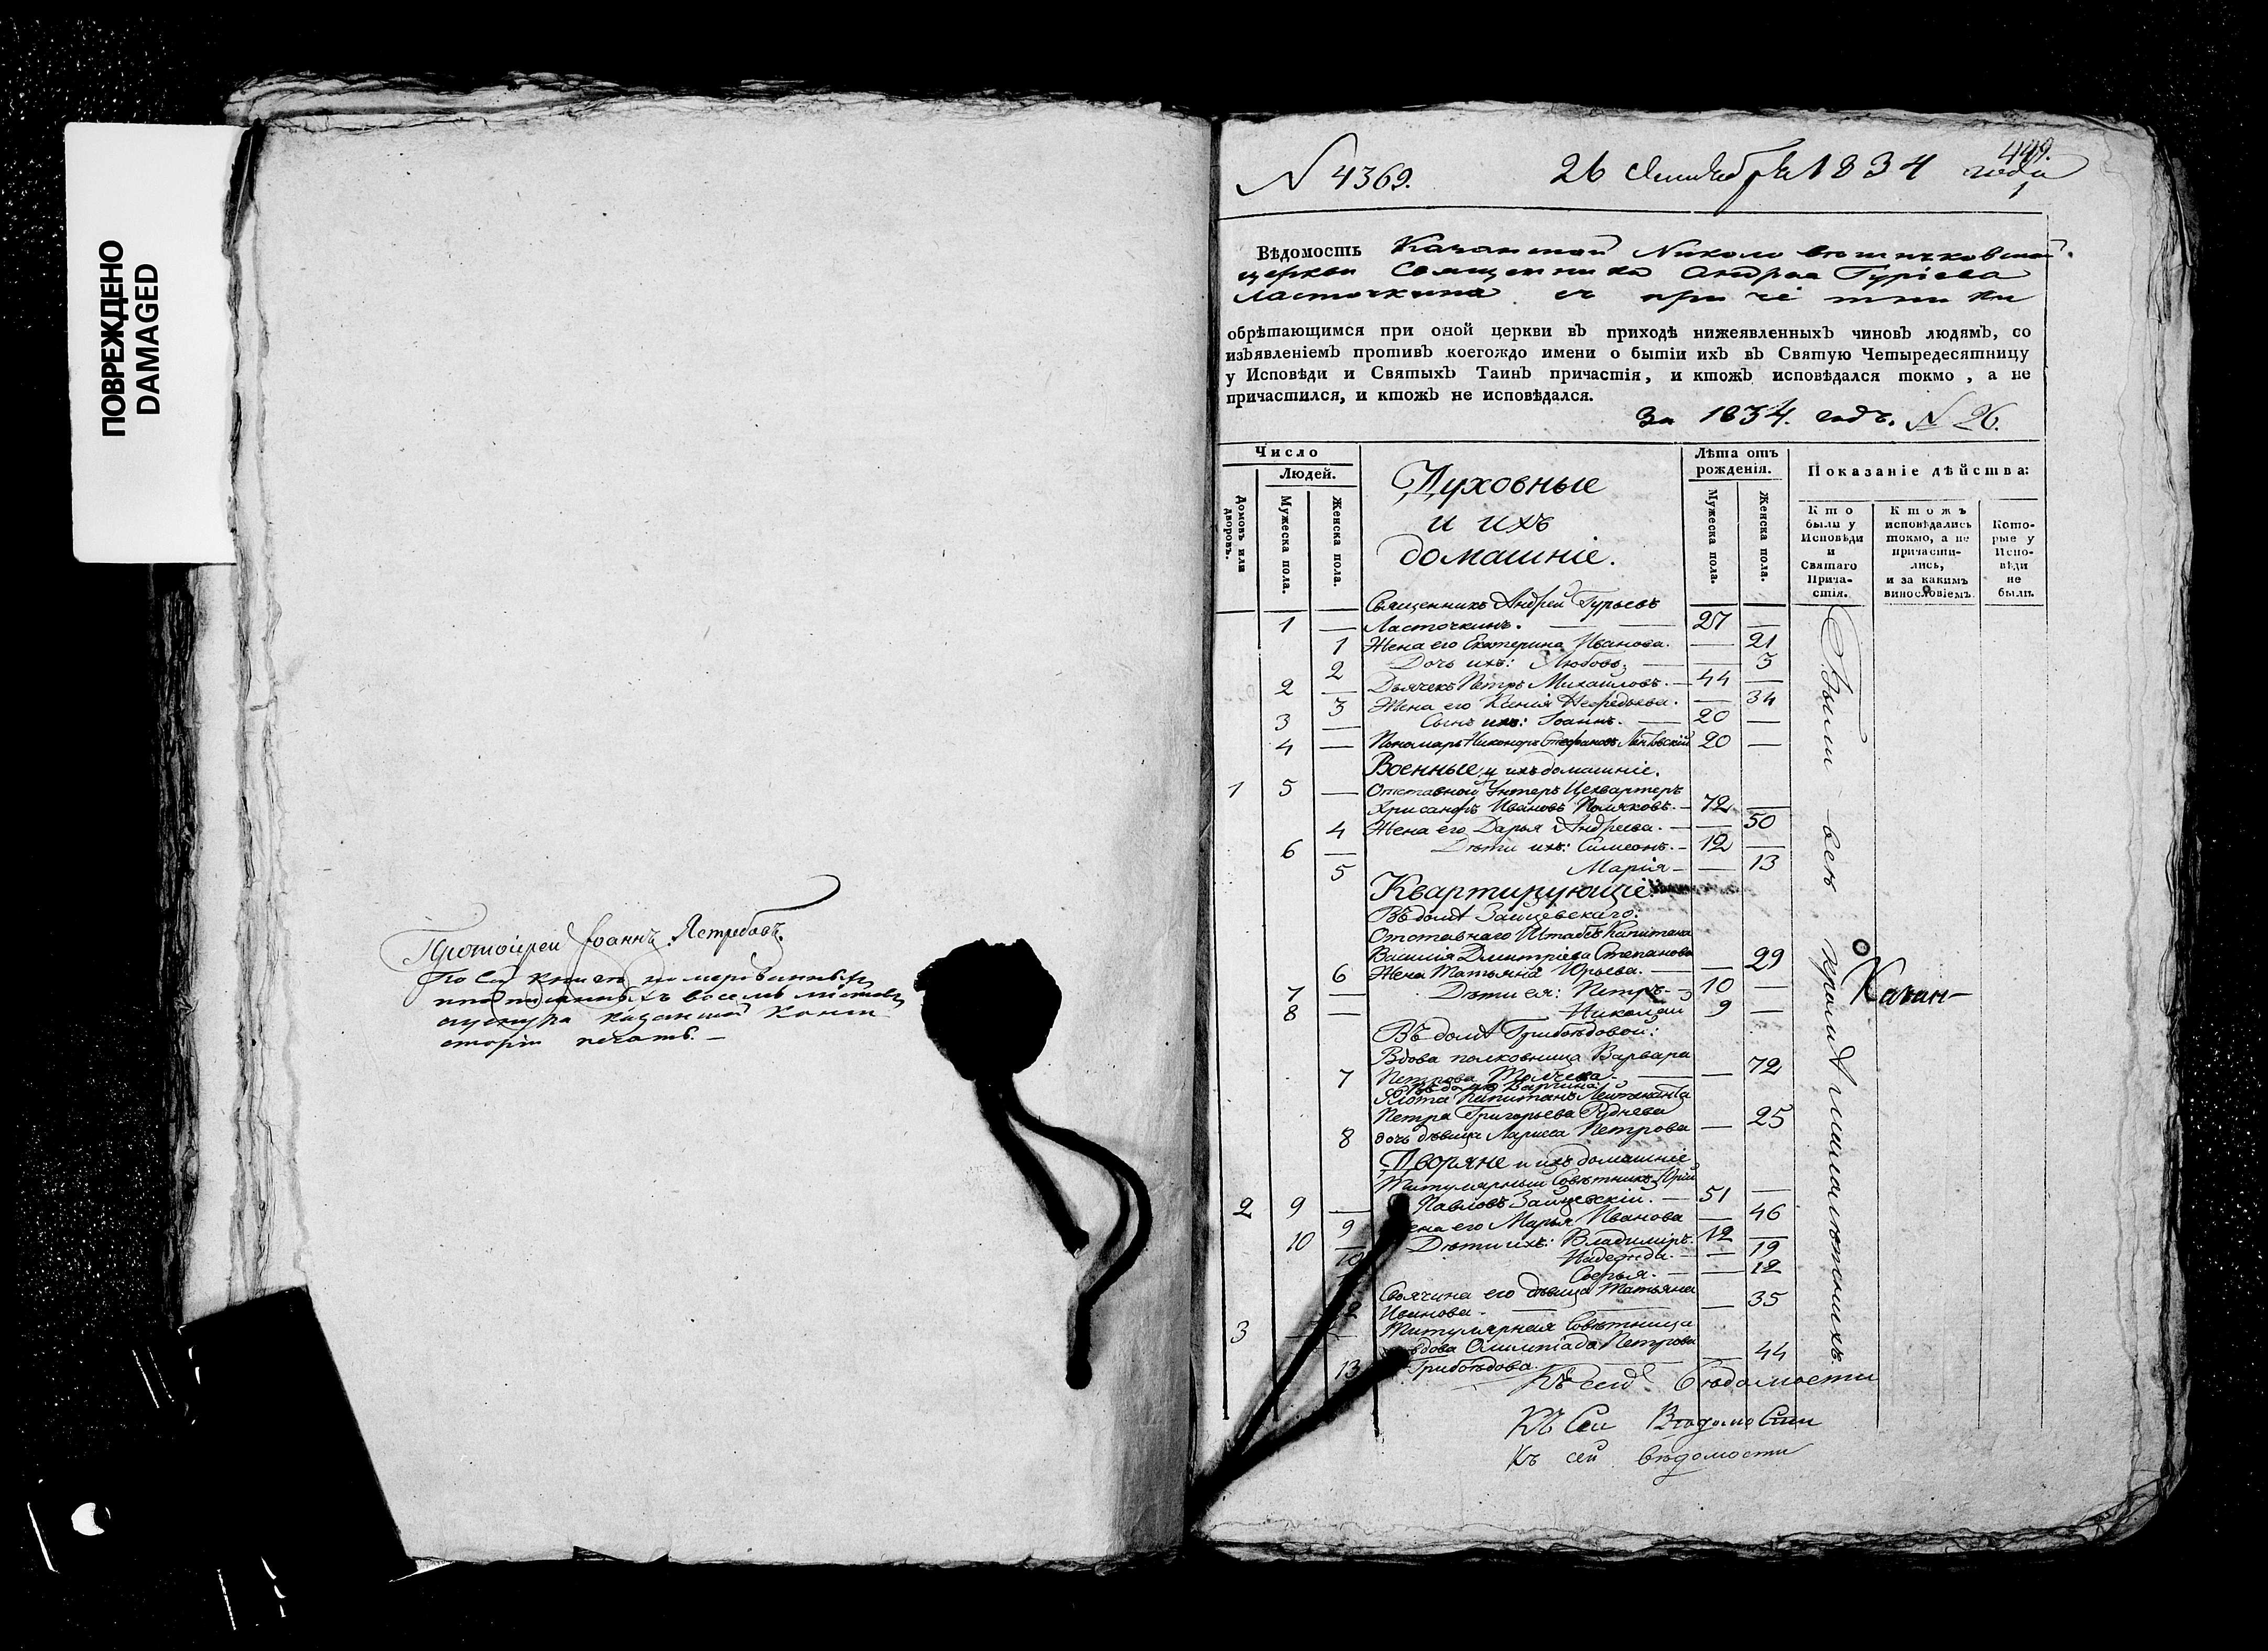 ПОВРЕЖДЕНО
DAMAGED
Протоіерей Іоаннъ Ястребовъ.
По сей книгѣ номерованныхъ
восемь листовъ
казанской Конси
сторіи печать. —
N 4369.
26 1834 года
449.
1
Вѣдомость Казанской Николо
церкви Священника Андрея Гуріева
Ласточкина съ причетники
обрѣтающимся при оной церкви въ приходѣ нижеявленныхъ чиновъ людямъ, со
изъявленіемъ противъ коегождо имени о бытіи ихъ въ Святую Четыредесятницу
у Исповѣди и Святыхъ Таинъ причастія, и ктожъ исповѣдался токмо, а не
причастился, и ктожъ не исповѣдался.
За 1834. годъ. N 26.
Число
Людей.
Домовъ или дворовъ.
Мужеска пола.
Женска пола.
Духовные
и ихъ
домашніе.
Лѣта отъ
рожденія.
Мужеска пола.
Женска пола.
Показаніе дѣйства:
Кто
были у
Исповѣди
и
Святаго
Прича-
стія.
Ктожъ
исповѣдались
токмо, а не
причасти-
лись,
и за какимъ
винословіемъ.
Кото-
рые у
Испо-
вѣди
не
были.
Священникъ Андрей Гурьевъ
1 — Ласточкинъ. — — 27 —
1 Жена его Екатерина Иванова. — 21
2 Дочь ихъ: Любовь, — — 3
2 — Дьячекъ Петръ Михайловъ. — 44 —
3 Жена его Ксенія — 34
3 — Сынъ ихъ: Іоаннъ. — 20 —
4 — Пономарь Никаноръ Стефановъ 20 —
Военные и ихъ домашніе.
1 5 — Отставной Унтеръ Цехвартеръ
Хрисанфъ Ивановъ Поляковъ. — 72 —
4 Жена его Дарья Андреева. — — 50
6 — Дѣти ихъ: Симеонъ. — 12 —
5 Марія — — 13
Квартирующіе
Въ домѣ Зайцевскаго:
Отставнаго Штабсъ Капитана
Василія Димитріева Степанова
6 Жена Татьяна Юрьева. — — 29
7 — Дѣти ея: Петръ — 10 —
8 — Николай 9 —
Въ домѣ Грибоѣдовой:
Вдова полковница Варвара
7 Петрова — — 72
Флота Капитанъ Лейтенанта
Петра Григорьева Руднева
8 дочь дѣвица Лариса Петрова — 25
Дворяне и ихъ домашніе
Титулярный Совѣтникъ Юрій
2 9 — Павловъ Зайцевскій. — 51 —
9 Жена его Марья Иванова — 46
10 — Дѣти ихъ: Владимиръ. 12 —
10 Надежда. — — 19
Софья. — — 12
Своячина его дѣвица Татьяна
12 Иванова. — — 35
3 — Титулярная Совѣтница
вдова Олимпіада Петрова
13 Грибоѣдова. — 44
Были всѣ кромѣ малолѣтнихъ.
Казан-
Къ сей вѣдомости
Къ Сей Вѣдомости
Къ сей вѣдомости